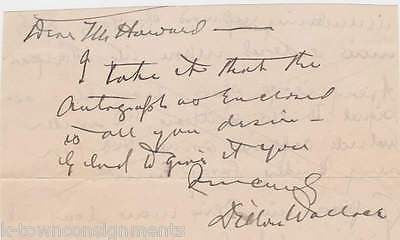 Dear Mr Howard —
I take it that the
Autograph as Enclosed
is all you desire —
Glad to give it you
Sincerely
Dillon Wallace
k-townconsignments